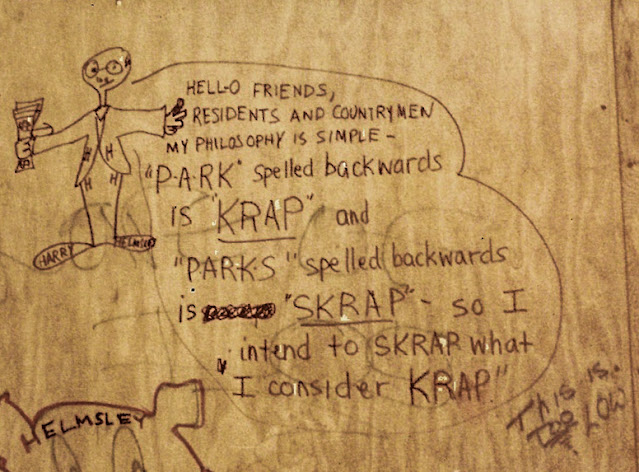 HELL-O FRIENDS,
RESIDENTS AND COUNTRYMEN
MY PHILOSOPHY IS SIMPLE -
"P-A-R-K" spelled backwards
is "KRAP" and
"PARKS" spelled backwards
is "SKRAP" - so I
intend to SKRAP what
"I consider KRAP"
H
H
H
H
HARRY
HELMSLEY
HELMSLEY
THIS IS
LOW